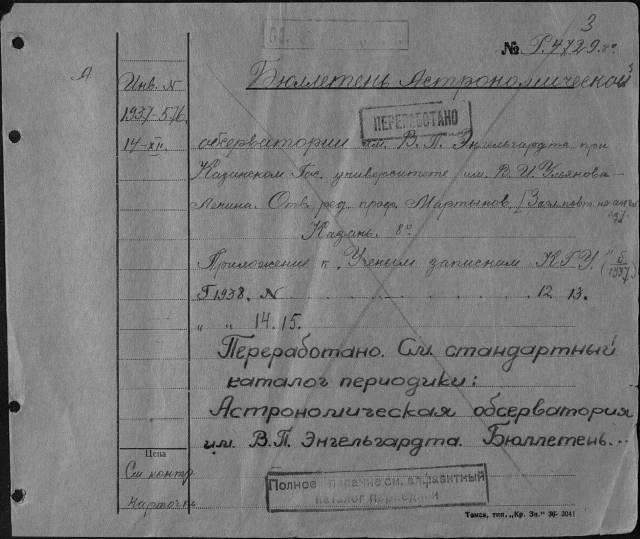 3
№ Р.4729
А
Инв. N
1937-576
14-XII.
Бюллетень Астрономической
ПЕРЕРАБОТАНО
обсерватории им. В. П. Энгельгардта при
Казанском Гос. университете им. В. И. Ульянова-
Ленина. Отв. ред. проф. Мартынов.
Казань. 8°.
Приложение к „Ученым запискам КГУ"
Г 1938. N . . . . . . . . . . 12 13.
„ „ 14. 15.
Переработано. См стандартный
каталог периодики:
Астрономическая обсерватория
им. В.П. Энгельгардта. Бюллетень...
Цена
См контр
карточк
Полное см. алфавитный
каталог периодики
Томск, тип. „Кр. Зн." 36- 2041